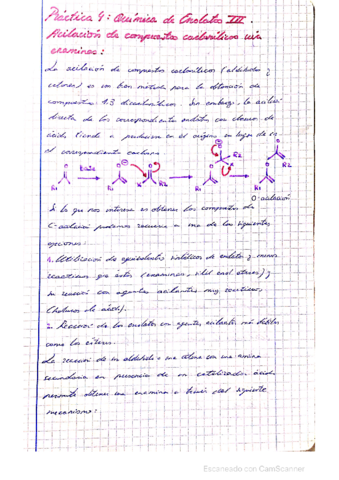 Práctica 4: Química de Enolatos III.
Acilación de compuestos carbonílicos vía
enaminas:
La acilación de compuestos carbonílicos (aldehídos y
cetonas) es un buen método para la obtención de
compuestos 1,3 dicarbonílicos. Sin embargo, la acilación
directa de los correspondientes enolatos con cloruros de
ácido tiende a producirse en el oxígeno en lugar de en
el correspondiente carbono.
Base
R1
R2
R1
R2
R1
R2
O-acilación
Si lo que nos interesa es obtener los compuestos de
C-acilación podemos recurrir a una de las siguientes
opciones:
1. Utilización de equivalentes sintéticos de enolatos y menos
reactivos que éstos (enaminas, silil enol éteres) y
su reacción con agentes acilantes muy reactivos,
(haluros de ácido).
2. Reacción de los enolatos con agentes acilantes más débiles
como los ésteres.
La reacción de un aldehído o una cetona con una amina
secundaria en presencia de un catalizador ácido
permite obtener una enamina a través del siguiente
mecanismo:
Escaneado con CamScanner